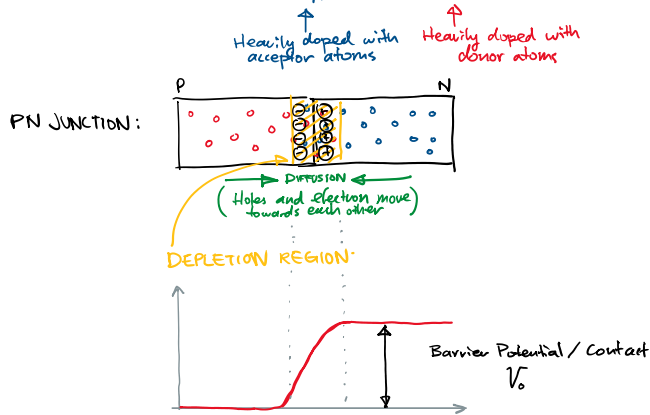 Heavily doped with
acceptor atoms
Heavily doped with
donor atoms
P
N
PN JUNCTION:
DIFFUSION
(Holes and electron move
towards each other)
DEPLETION REGION.
Barrier Potential / Contact
V₀